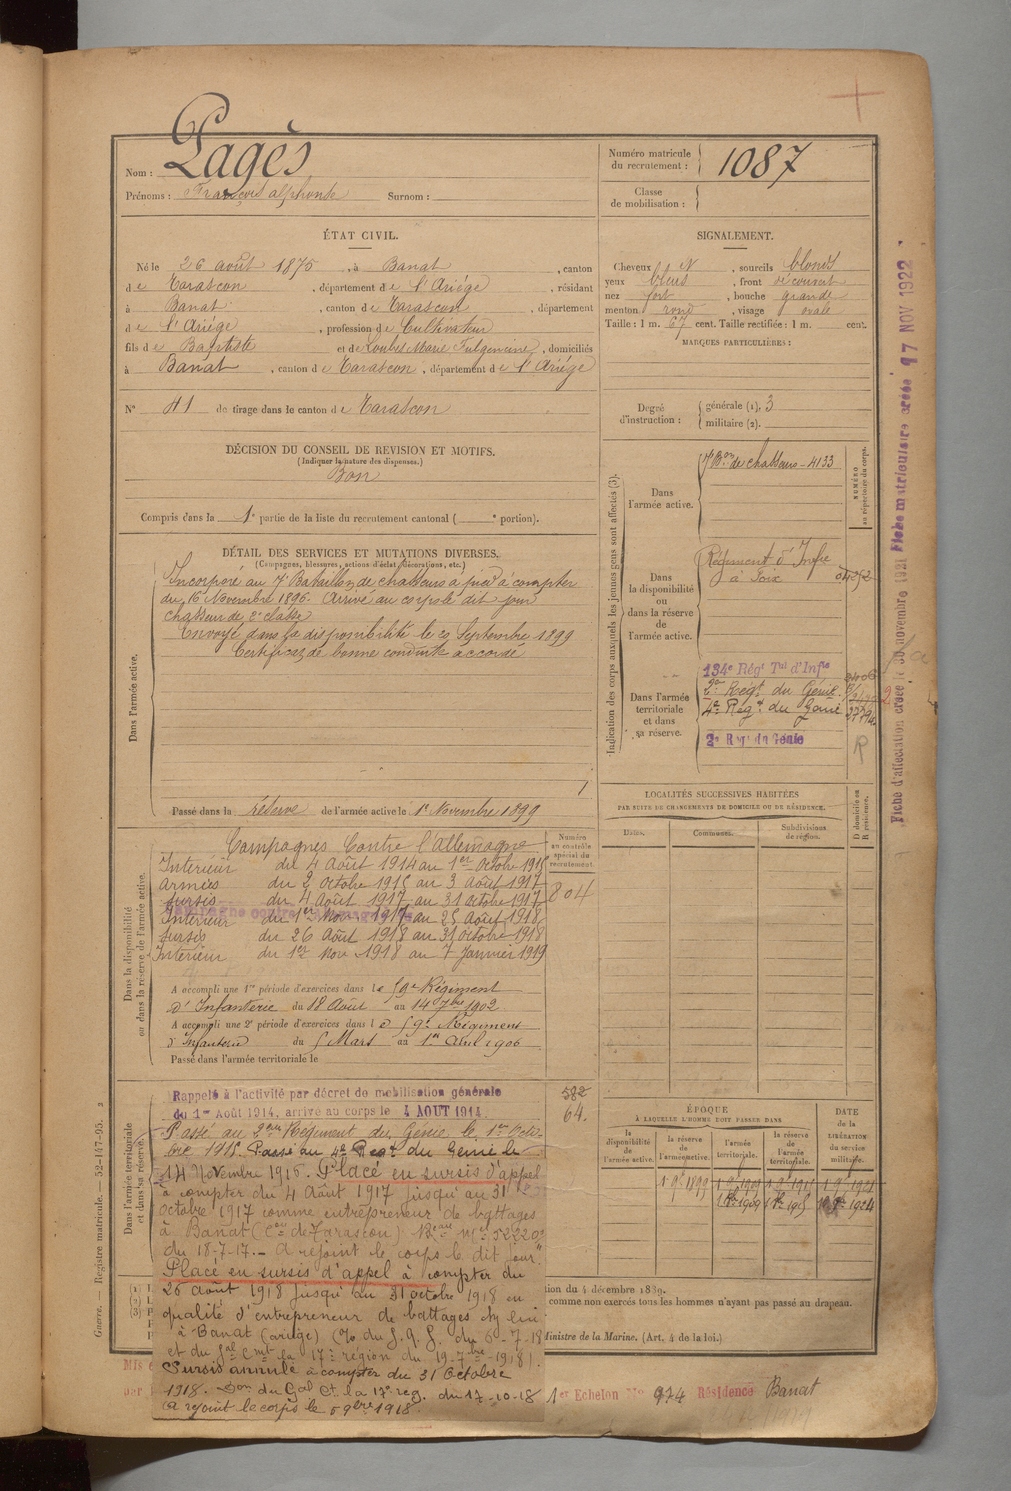 Nom : Pagès
Prénoms : François alphonse Surnom :
Numéro matricule du recrutement : 1087
Classe de mobilisation :
ÉTAT CIVIL.
Né le 26 août 1875, à Banat, canton
de Tarascon, département de l'Ariége, résidant
à Banat, canton de Tarascon, département
de l'Ariége, profession de Cultivateur
fils de Baptiste et de Loubes Marie Fulgencine, domiciliés
à Banat, canton de Tarascon, département de l'Ariége
N° 41 de tirage dans le canton de Tarascon
DÉCISION DU CONSEIL DE REVISION ET MOTIFS.
(Indiquer la nature des dispenses.)
Bon
Compris dans la 1e partie de la liste du recrutement cantonal ( e portion).
SIGNALEMENT.
Cheveux et , sourcils blonds
yeux bleus, front découvert
nez fort, bouche grande
menton rond, visage ovale
Taille : 1 m. 67 cent. Taille rectifiée : 1 m. cent.
MARQUES PARTICULIÈRES :
Degré d'instruction : générale (1). 3
militaire (2).
DÉTAIL DES SERVICES ET MUTATIONS DIVERSES.
(Campagnes, blessures, actions d'éclat, décorations, etc.)
Dans l'armée active.
Incorporé au 7e Bataillon de chasseurs à pied à compter
du 16 Novembre 1896. Arrivé au corps le dit jour
chasseur de 2e classe
Envoyé dans la disponibilité le 20 Septembre 1899
Certificat de bonne conduite accordé
1
Passé dans la réserve de l'armée active le 1er Novembre 1899
Indication des corps auxquels les jeunes gens sont affectés (3).
NUMÉRO au répertoire du corps.
Dans l'armée active. 7e Bon de chasseurs - 4133
Dans la disponibilité ou dans la réserve de l'armée active.
Régiment d'Infie
à Foix
Dans l'armée territoriale et dans sa réserve.
134e Régt Tal d'Infie
2e Régt du Génie
4e Régt du Génie
2e Régt du Génie
R
LOCALITÉS SUCCESSIVES HABITÉES
PAR SUITE DE CHANGEMENTS DE DOMICILE OU DE RÉSIDENCE.
Dates. Communes. Subdivisions de région.
D domicile ou R résidence.
Dans la disponibilité ou dans la réserve de l'armée active.
Numéro au contrôle spécial du recrutement.
804
Campagnes Contre l'Allemagne
Intérieur du 4 Août 1914 au 1er Octobre 1915
Armées du 2 octobre 1915 au 3 Août 1917
sursis du 4 Août 1917 au 31 octobre 1917
Intérieur du 1er Nov 1917 au 25 Août 1918
sursis du 26 Août 1918 au 31 Octobre 1918
Intérieur du 1er Nov 1918 au 7 Janvier 1919
A accompli une 1re période d'exercices dans le 59e Régiment
d'Infanterie du 18 Août au 14 7bre 1902
A accompli une 2e période d'exercices dans le 59e Régiment
d'Infanterie du 5 Mars au 1er Avril 1906
Passé dans l'armée territoriale le
Dans l'armée territoriale et dans sa réserve.
582
64.
Rappelé à l'activité par décret de mobilisation générale
du 1er Août 1914, arrivé au corps le 4 AOUT 1914.
Passé au 2ème Régiment du Génie le 1er Octo-
bre 1915. Passé au 4e Regt du Génie le
14 Novembre 1916. Placé en sursis d'appel
à compter du 4 Août 1917 jusqu'au 31
Octobre 1917 comme entrepreneur de battages
à Banat (Con de Tarascon) Beau Mre 52220
du 18-7-17. - A rejoint le corps le dit jour.
Placé en sursis d'appel à compter du
26 août 1918 jusqu'au 31 octobre 1918 en
qualité d'entrepreneur de battages chez lui
à Banat (ariège) (% du J. G. J. du 6-7-18
et du Gal Cmt la 17e région du 19-7bre-1918).
Sursis annulé à compter du 31 Octobre
1918. Don du Gal Ct la 17e reg. du 17-10-18
A rejoint le corps le 5 9bre 1918
ÉPOQUE
À LAQUELLE L'HOMME DOIT PASSER DANS
la disponibilité de l'armée active. la réserve de l'armée active. l'armée territoriale. la réserve de l'armée territoriale.
DATE de la LIBÉRATION du service militaire.
1 9e 1899 1 9e 1909 1 9e 1915 1 9e 1921
1 8e 1909 1 8e 1915 1924
tion du 4 décembre 1889.
comme non exercés tous les hommes n'ayant pas passé au drapeau.
Ministre de la Marine. (Art. 4 de la loi.)
1er Echelon No 974 Résidence Banat
Guerre. — Registre matricule. — 52-147-95. 2
Fiche d'affectation créée le 30 novembre 1921 Fiche matriculaire créée 17 NOV 1922